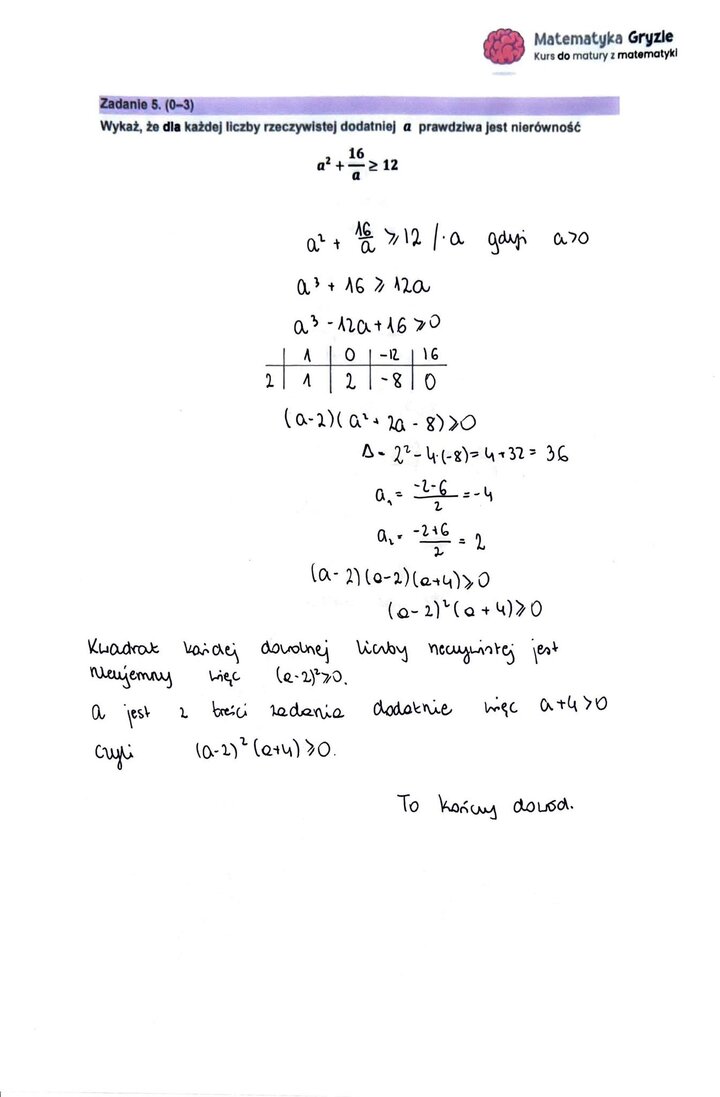 Matematyka Gryzie
Kurs do matury z matematyki
Zadanie 5. (0–3)
Wykaż, że dla każdej liczby rzeczywistej dodatniej a prawdziwa jest nierówność
a² + 16/a ≥ 12
a² + 16/a ≥ 12 /·a gdyż a>0
a³ + 16 ≥ 12a
a³ - 12a + 16 ≥ 0
| 1 | 0 | -12 | 16
2 | 1 | 2 | -8 | 0
(a-2)(a² + 2a - 8) ≥ 0
Δ = 2² - 4·(-8) = 4+32 = 36
a₁ = (-2-6)/2 = -4
a₂ = (-2+6)/2 = 2
(a-2)(a-2)(a+4) ≥ 0
(a-2)²(a+4) ≥ 0
Kwadrat każdej dowolnej liczby rzeczywistej jest
nieujemny więc (a-2)² ≥ 0.
a jest z treści zadania dodatnie więc a+4 > 0
czyli (a-2)²(a+4) ≥ 0.
To kończy dowód.